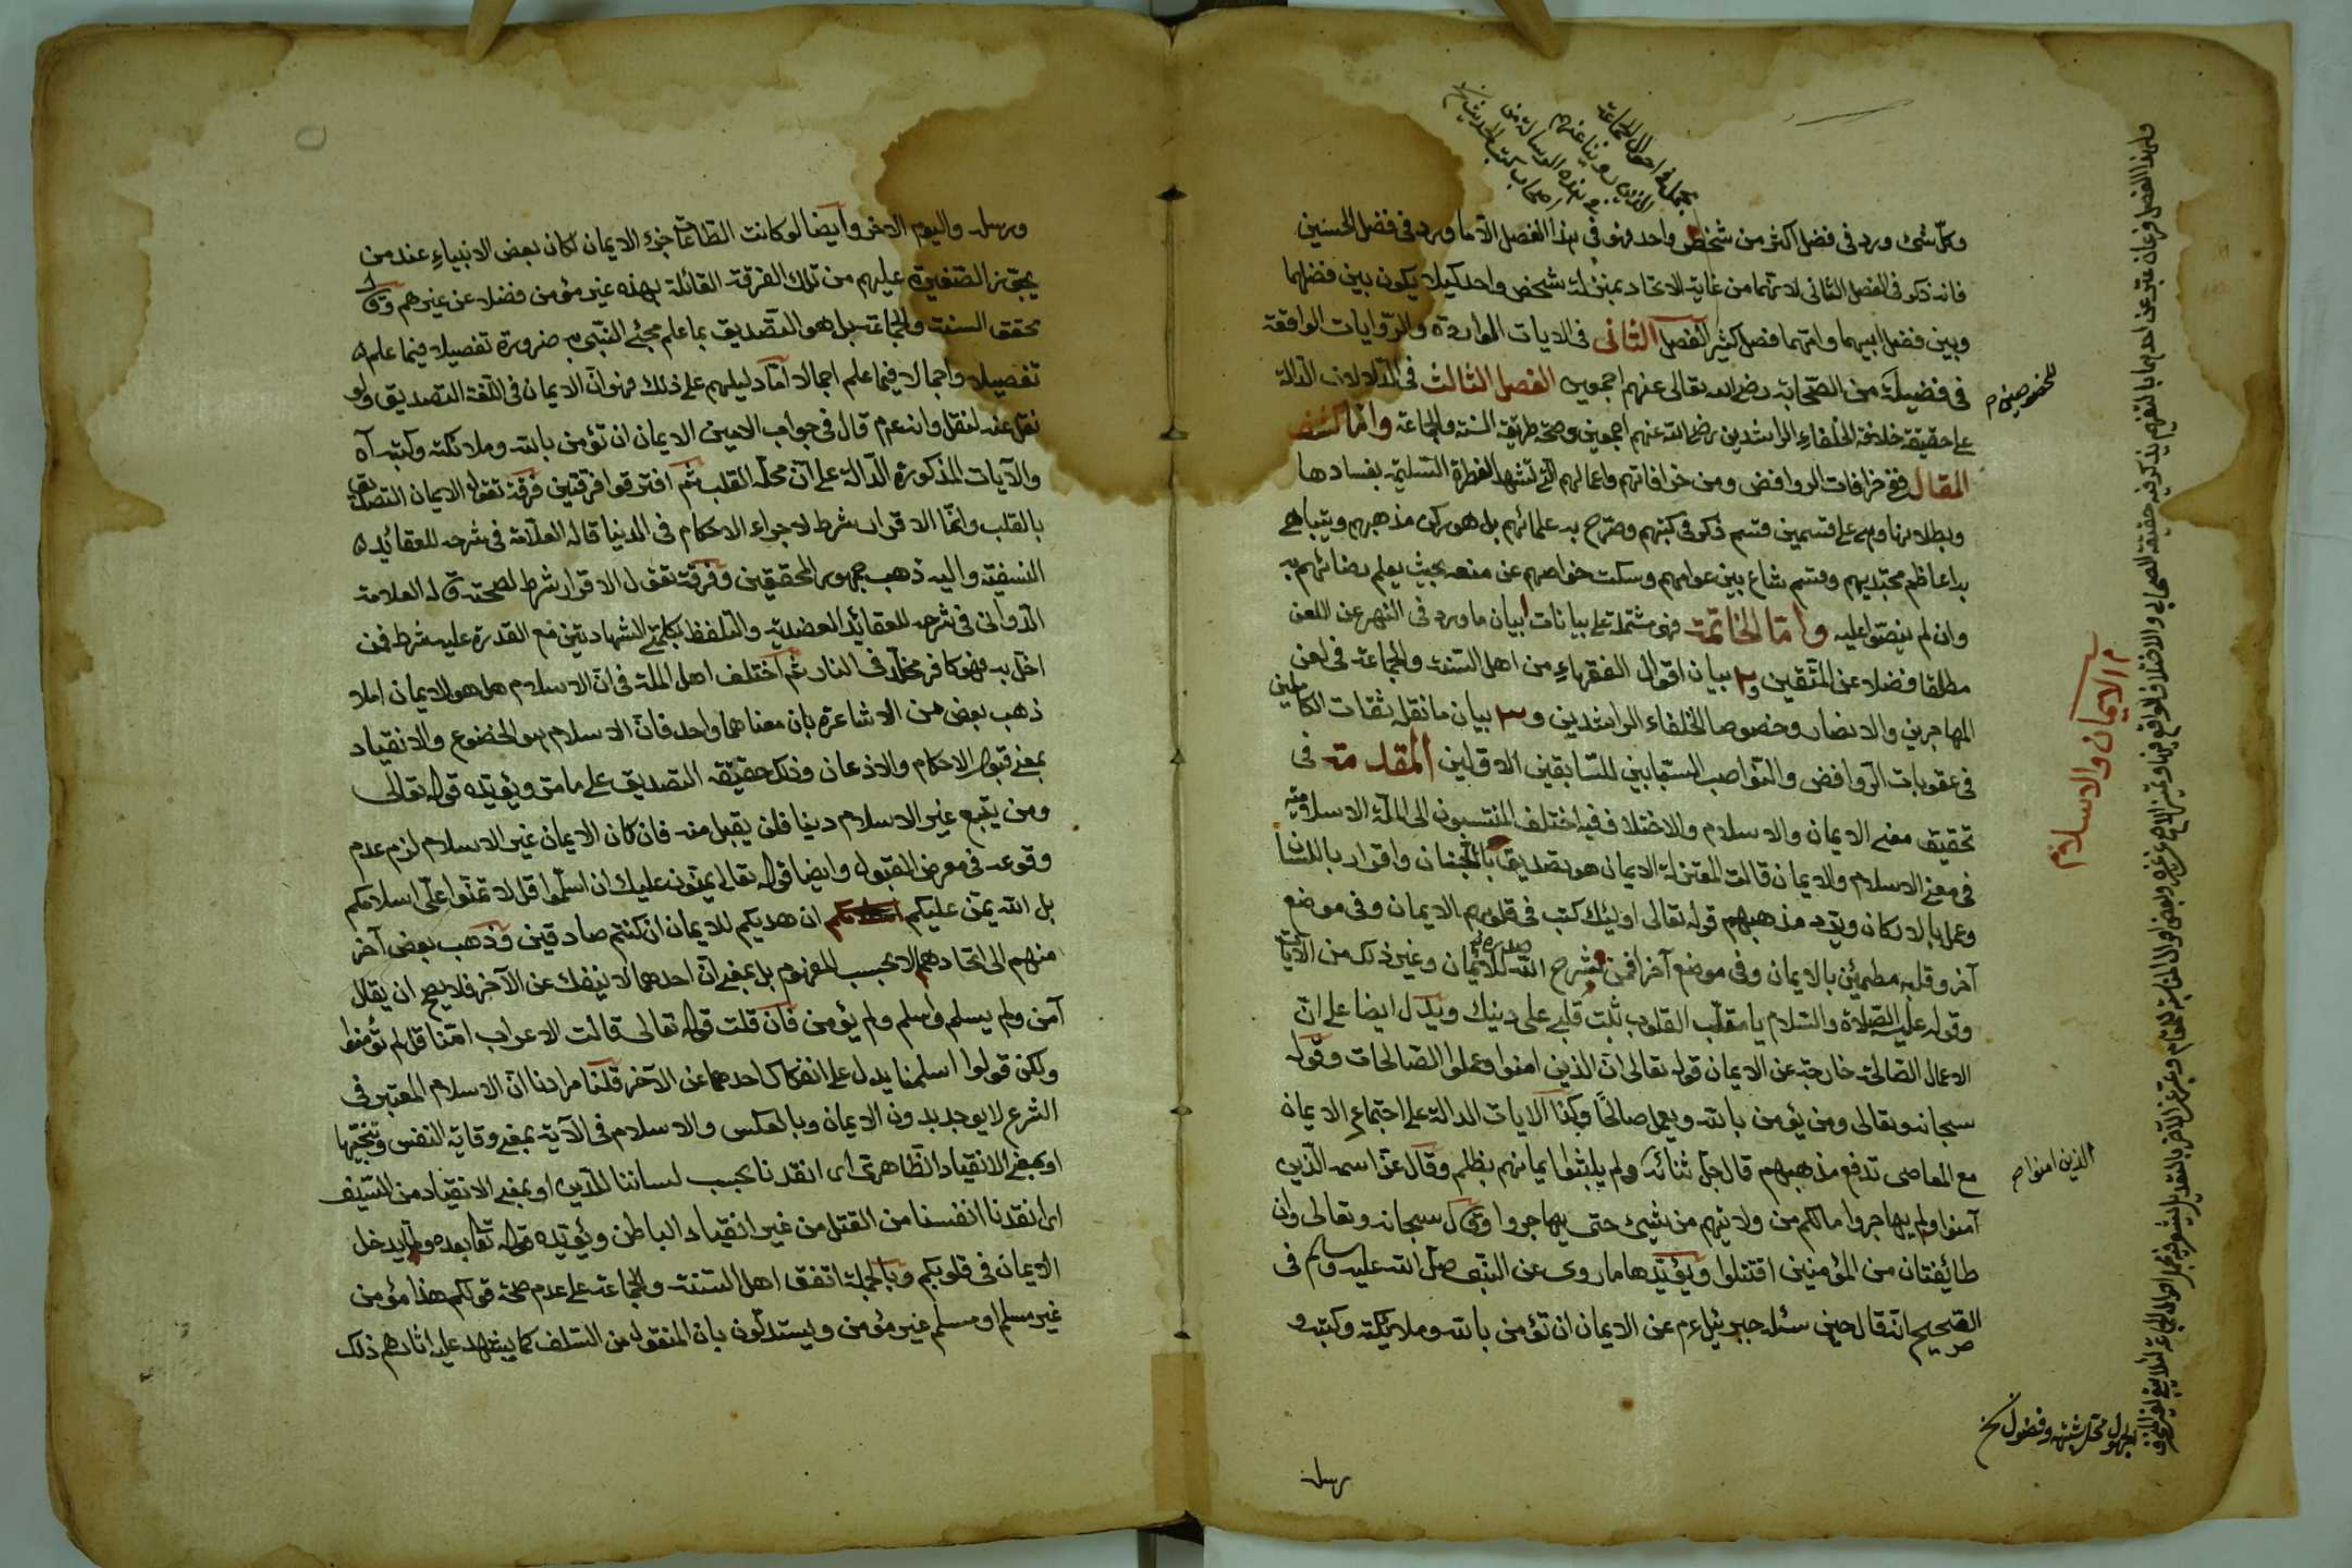 وكلّ شئ ورد فى فضل اكثر من شخص واحد فهو فى هذا الفصل الّا ما ورد فى فضل الحسنين
فانه ذكر فى الفصل الثانى لانهما من غاية الاتحاد بمنزلة شخص واحد كيلا يكون بين فضلهما
وبين فضل ابيهما وامّهما فصل كثير الفصل الثانى فى الايات الواردة والرّوايات الواقعة
فى فضيلة من الصّحابة رضى الله تعالى عنهم اجمعين الفصل الثالث فى الدّلالات الدّالة
على حقيقة خلافة الخلفاء الراشدين رضى الله عنهم اجمعين وصحّة طريقة السنة والجماعة وامّا كشف
المقال ففى خرافات الروافض ومن خرافاتهم واعمالهم الّتى تشهد الفطرة السّليمة بفسادها
وبطلانها وهى على قسمين قسم ذكر فى كتبهم وصرّح به علمائهم بل هو ركن مذهبهم ويتباهى
به اعاظم مجتهديهم وقسم شاع بين عوامهم وسكت خواصهم عن منعه بحيث يعلم رضائهم به
وان لم ينصّوا عليه وامّا الخاتمة فهى مشتملة على بيانات ا بيان ما ورد فى النهى عن اللعن
مطلقا فضلا عن المتّقين و٢ بيان اقوال الفقهاء من اهل السّنة والجماعة فى لعن
المهاجرين والانصار وخصوصا الخلفاء الراشدين و٣ بيان ما نقل ثقات الكاملين
فى عقوبات الرّوافض والنّواصب السبّابين للسّابقين الاوّلين المقدمة فى
تحقيق معنى الايمان والاسلام والاختلاف فيه اختلف المنتسبون الى الملّة الاسلاميّة
فى معنى الاسلام والايمان قالت المعتزلة الايمان هو تصديق بالجنان واقرار باللسان
وعمل بالاركان ويردّ مذهبهم قوله تعالى اولئك كتب فى قلوبهم الايمان وفى موضع
آخر وقلبه مطمئن بالايمان وفى موضع آخر افمن شرح الله صدره للايمان وغير ذلك من الآيات
وقوله عليه الصّلاة والسّلام يا مقلّب القلوب ثبّت قلبى على دينك ويدلّ ايضا على انّ
الاعمال الصّالحة خارجة عن الايمان قوله تعالى انّ الذين امنوا وعملوا الصّالحات وقوله
سبحانه وتعالى ومن يؤمن بالله ويعمل صالحًا وكذا الايات الدالة على اجتماع الايمان
مع المعاصى تدفع مذهبهم قال جلّ ثنائه ولم يلبثوا ايمانهم بظلم وقال عزّ اسمه الّذين
آمنوا ولم يهاجروا ما لكم من ولايتهم من شيئ حتى يهاجروا وقال سبحانه وتعالى وان
طائفتان من المؤمنين اقتتلوا ويؤيّدها ما روى عن النبى صلّى الله عليه وسلّم فى
الصّحيح انّه قال حين سئله جبرئيل عم عن الايمان ان تؤمن بالله وملائكته وكتبه و
رسله
م الايمان والاسلام
الذين امنوا ص
ورسله واليوم الاخر وأيضا لو كانت الطّاعات جزء الايمان لكان بعض الانبياء عند من
يجوّز الصّغيرة عليهم من تلك الفرقة القائلة بهذه غير مؤمن فضلا عن غيرهم وقال
محقق السنة والجماعة بل هو التّصديق بما علم مجئ النّبى به ضرورة تفصيلا فيما علم
تفصيلا واجمالا فيما علم اجمالا امّا دليلهم على ذلك فهو انّ الايمان فى اللّغة التصديق ولو
نقل عنه لنقل وانه عم قال فى جواب الامين الايمان ان تؤمن بالله وملائكته وكتبه آه
والآيات المذكورة الدّالة على انّ محلّه القلب ثم افترقوا فرقتين فرقة تقول الايمان التصديق
بالقلب وانّما الاقرار شرط لاجراء الاحكام فى الدنيا قاله العلّامة فى شرحه للعقائد
النسفيّة واليه ذهب جمهور المحققين وفرقة تقول الاقرار شرط لصحته قاله العلامة
الدّوانى فى شرحه للعقائد العضدية والتلفظ بكلمتى الشهادتين مع القدرة عليه شرط فمن
اخلّ به فهو كافر مخلّد فى النار ثم اختلف اهل الملة فى انّ الاسلام هل هو الايمان ام لا
ذهب بعض من الاشاعرة بان معناهما واحد فانّ الاسلام هو الخضوع والانقياد
بمعنى قبول الاحكام والاذعان وذلك حقيقة التصديق على ما مرّ ويؤيّده قوله تعالى
ومن يتبع غير الاسلام دينا فلن يقبل منه فان كان الايمان غير الاسلام لزم عدم
وقوعه فى معرض القبول وايضا قوله تعالى يمنّون عليك ان اسلموا قل لا تمنّوا علىّ اسلامكم
بل الله يمنّ عليكم ان هديكم للايمان ان كنتم صادقين وذهب بعض آخر
منهم الى اتحادهما لا بحسب المفهوم بل بمعنى انّ احدهما لا ينفك عن الآخر فلا يصح ان يقال
آمن ولم يسلم واسلم ولم يؤمن فان قلت قوله تعالى قالت الاعراب امنّا قل لم تؤمنوا
ولكن قولوا اسلمنا يدل على انفكاك احدهما عن الآخر قلنا مرادنا انّ الاسلام المعتبر فى
الشرع لا يوجد بدون الايمان وبالعكس والاسلام فى الآية بمعنى وقاية النفس
او بمعنى الانقياد الظاهرى اى انقدنا بحسب لساننا الّذى او بمعنى الانقياد من السّيف
اى انقدنا انفسنا من القتل من غير انقياد الباطن ويؤيّده قوله تعا بعده ولمّا يدخل
الايمان فى قلوبكم وبالجملة اتفق اهل السّنة والجماعة على عدم صحّة قولكم هذا مؤمن
غير مسلم او مسلم غير مؤمن ويستدلّون بان المنقول من السّلف كما يشهد عليه اثارهم ذلك